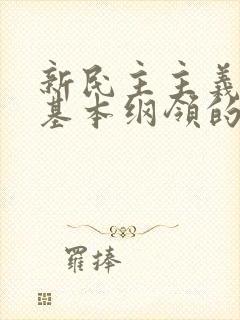 新民主主義
基本纲领的
羅捧